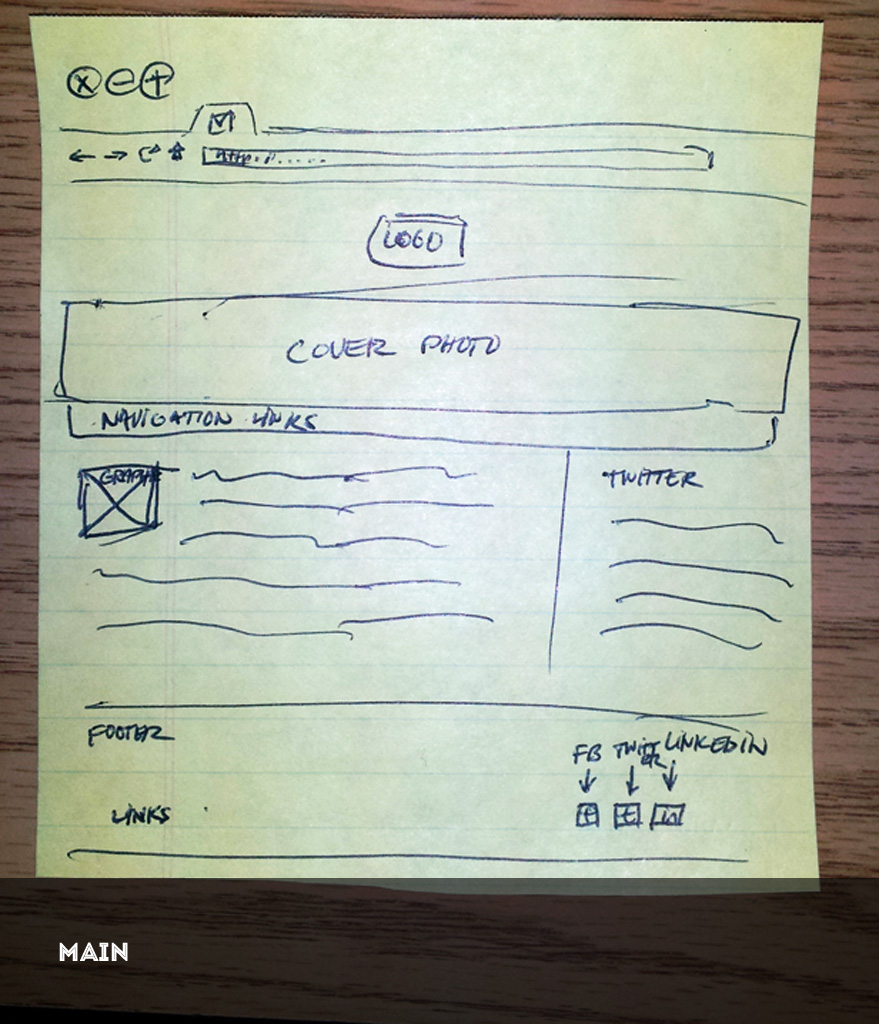 http://.....
LOGO
COVER PHOTO
NAVIGATION LINKS
GRAPHIC
TWITTER
FOOTER
FB TWITTER LINKEDIN
LINKS
f t in
MAIN